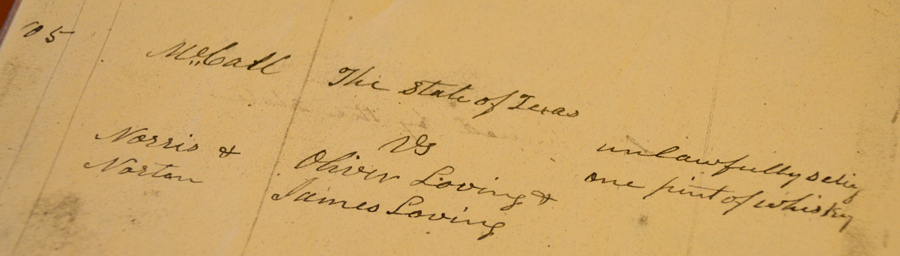 05
McCall
The State of Texas
Vs
Norris &
Norton
Oliver Loving &
James Loving
unlawfully selig
one pint of whisky